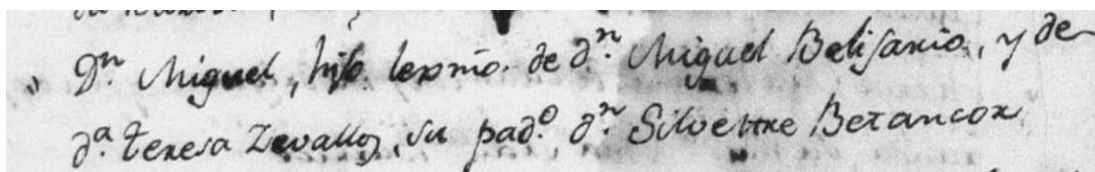 Dn Miguel, hijo lexmo. de dn. Miguel Belisario, y de
da. Teresa Zevallos, su pado. dn. Silvestre Betancor